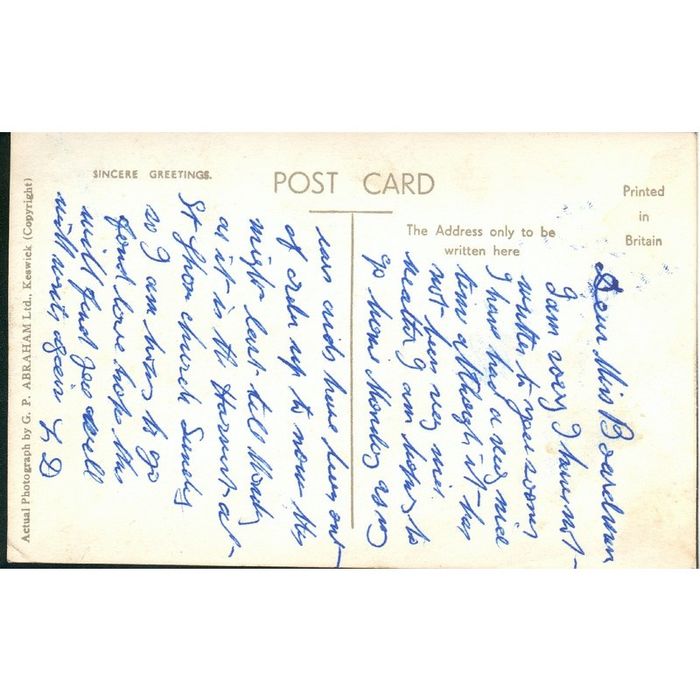 SINCERE GREETINGS.
POST CARD
Printed
in
Britain
The Address only to be
written here
Actual Photograph by G. P. ABRAHAM Ltd., Keswick (Copyright)
Dear Miss Boardman
I am very I have not
written to you sooner
I have had a very nice
time although it has
not been very nice
weather I am hopes to
go home Monday as my
ears aids have been out
of order up to now they
might last till Monday
as it is the Harvest at
St church Sunday
so I am hopes to go
fond love hope this
will find you well
will write again L D